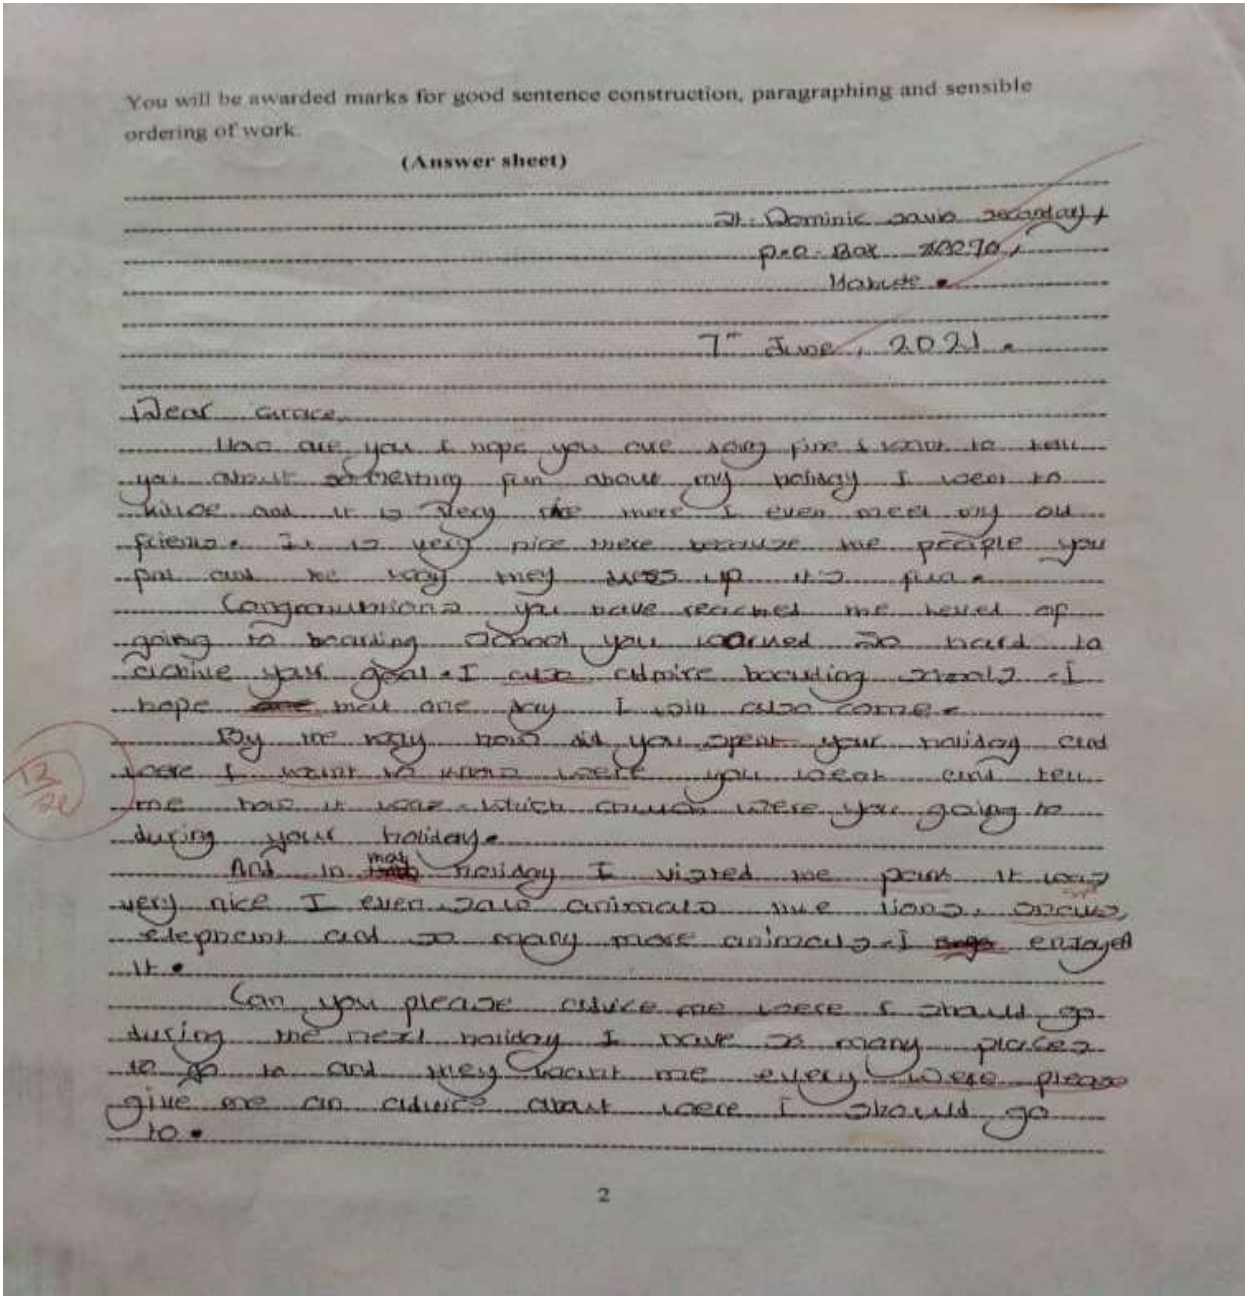 You will be awarded marks for good sentence construction, paragraphing and sensible
ordering of work.
(Answer sheet)
St. Dominic savio secondary,
p.o. Box
7th June, 2021.
Dear Grace,
How are you I hope you are doing fine I want to tell
you about something fun about my holiday I went to
and it is very nice there I even meet my old
friend. It is very nice there because the people you
and the way they dress up it's fun.
Congratulations you have reached the level of
going to boarding school you learned so hard to
your goal. I also admire boarding schools. I
hope that one day I will also come.
By the way how did you spent your holiday and
were I want to know were you went and tell
me how it was. which church were you going to
during your holiday.
And in my holiday I visited the park it was
very nice I even saw animals like lions,
elephant and so many more animals. I enjoyed
it.
Can you please advice me were I should go
during the next holiday I have so many places
to go to and they want me every were please
give me an advice about were I should go
to.
12/20
2